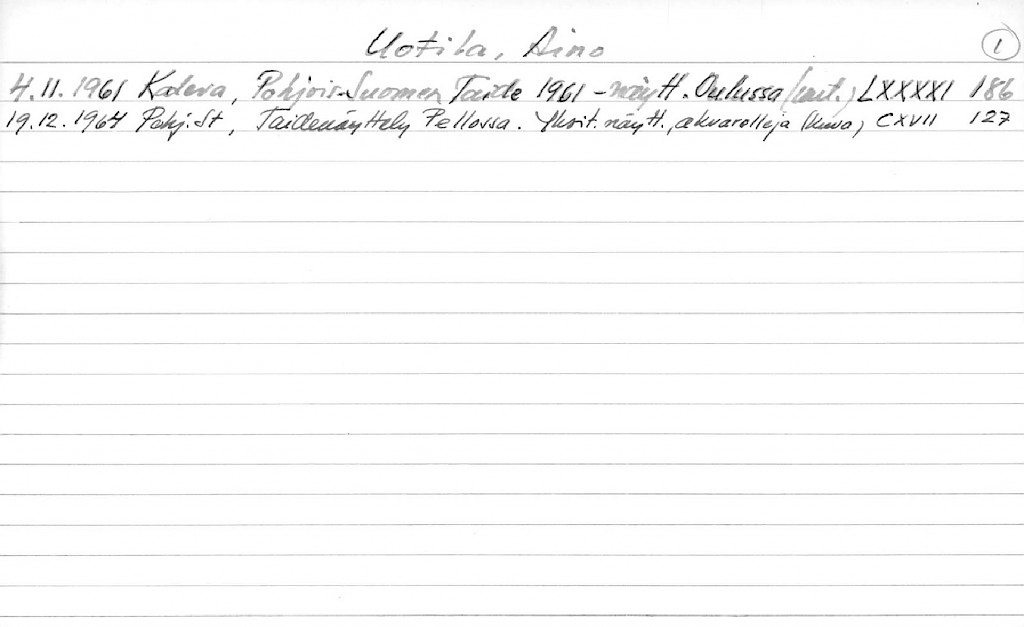 Uotila, Aino 1
4.11.1961 Kaleva, Pohjois-Suomen Taide 1961 -näytt. Oulussa LXXXXI 186
19.12.1964 Pohj.St, Taidenäyttely Pellossa. Yksit.näytt., akvarelleja (kuva) CXVII 127